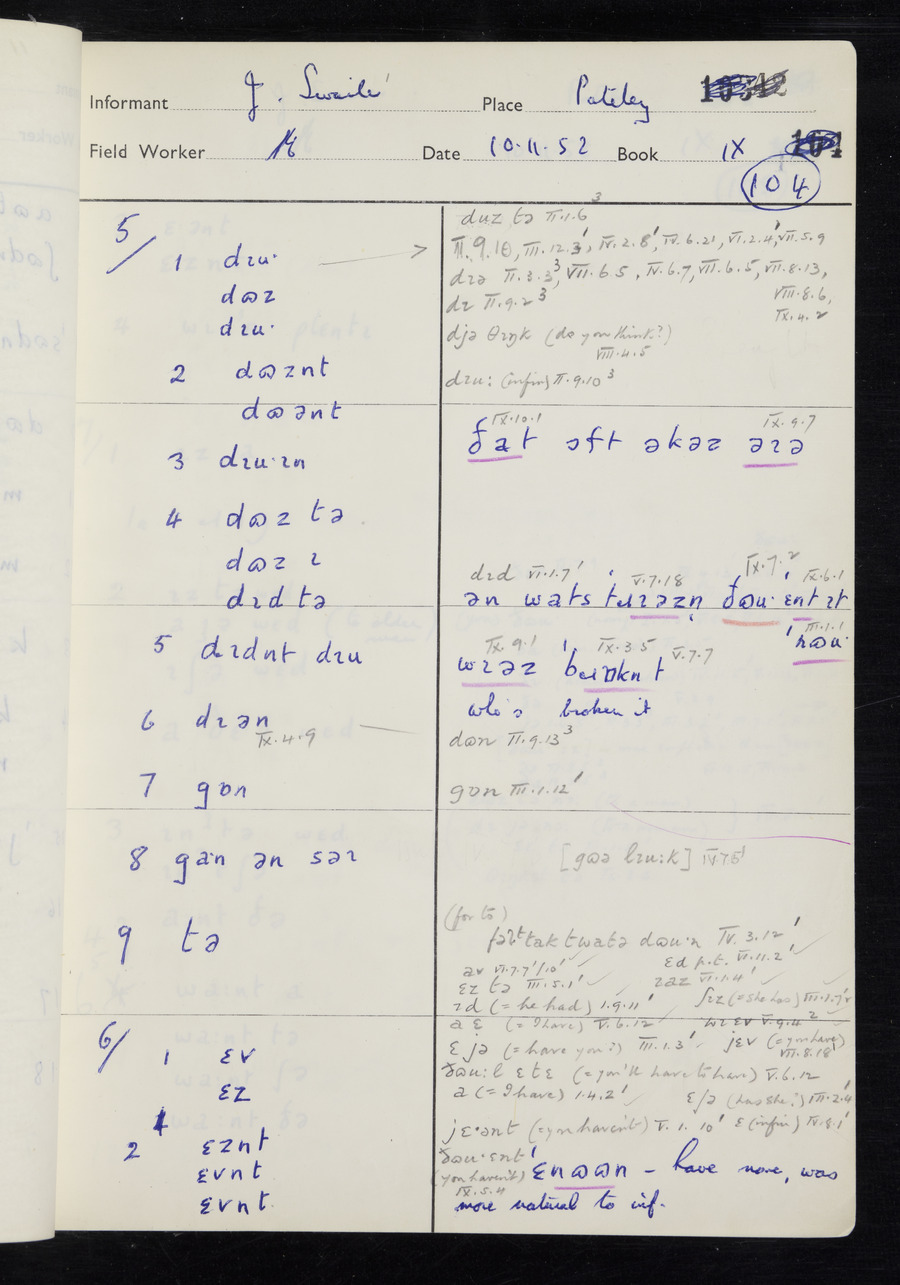 Informant J. Swailes Place Pateley
Field Worker Date 10.11.52 Book IX
104
5/
1 dɪu·
dɷz
dɪu·
2 dɷznt
dɷənt
3 dɪu·ɪn
4 dɷz tə
dɷz ɪ
dɪd tə
5 dɪdnt dɪu
6 dɪən
IX.4.9
7 gɒn
8 ga·n ən səɪ
9 tə
6/
1 ɛv
ɛz
2 ɛznt
ɛvnt
ɛvnt
duz tə II.1.6³
II.9.10, III.12.3', IV.2.8', IV.6.21, VI.2.4', VII.5.9
dɪə II.3.3³, VII.6.5, IV.6.7, VII.6.5, VII.8.13,
dɪ II.9.2³ VIII.8.6,
IX.4.2
djə θɪŋk (do you think?)
VIII.4.5
dɪu: (infin) II.9.10³
IX.10.1 IX.9.7
ðat ɔft əkəz əɪə
dɪd VI.1.7' V.7.18 IX.7.2 IX.6.1
ðɷu· ɛnt ɪt
III.1.1
'nɷu·
IX.9.1 IX.3.5 V.7.7
wɪəz
who's broken it
dɷn II.9.13³
gɒn III.1.12'
[gɷə lɪu:k] IV.7.5'
(for to)
tak twatə dɷu·n IV.3.12'
av VI.7.7'/10' ɛd p.t. VI.11.2'
ɛz tə III.5.1' ɪaz VI.1.4'
ɪd (= he had) 1.9.11' ʃɪz (= she has) III.1.7'
a ɛ (= I have) V.6.12 wɪ ɛv V.9.4²
ɛ jə (= have you?) III.1.3' jɛv (= you have)
VII.8.18'
ðɷu:l ɛ tɛ (= you'll have to have) V.6.12
a (= I have) 1.4.2' ɛʃə (has she?) III.2.4'
jɛ·ənt (= you haven't) V.1.10' ɛ (infin) IV.8.1'
ðɷu·ɛnt'
(you haven't) ɛnɷɷn – have none, was
IX.5.4
more natural to inf.